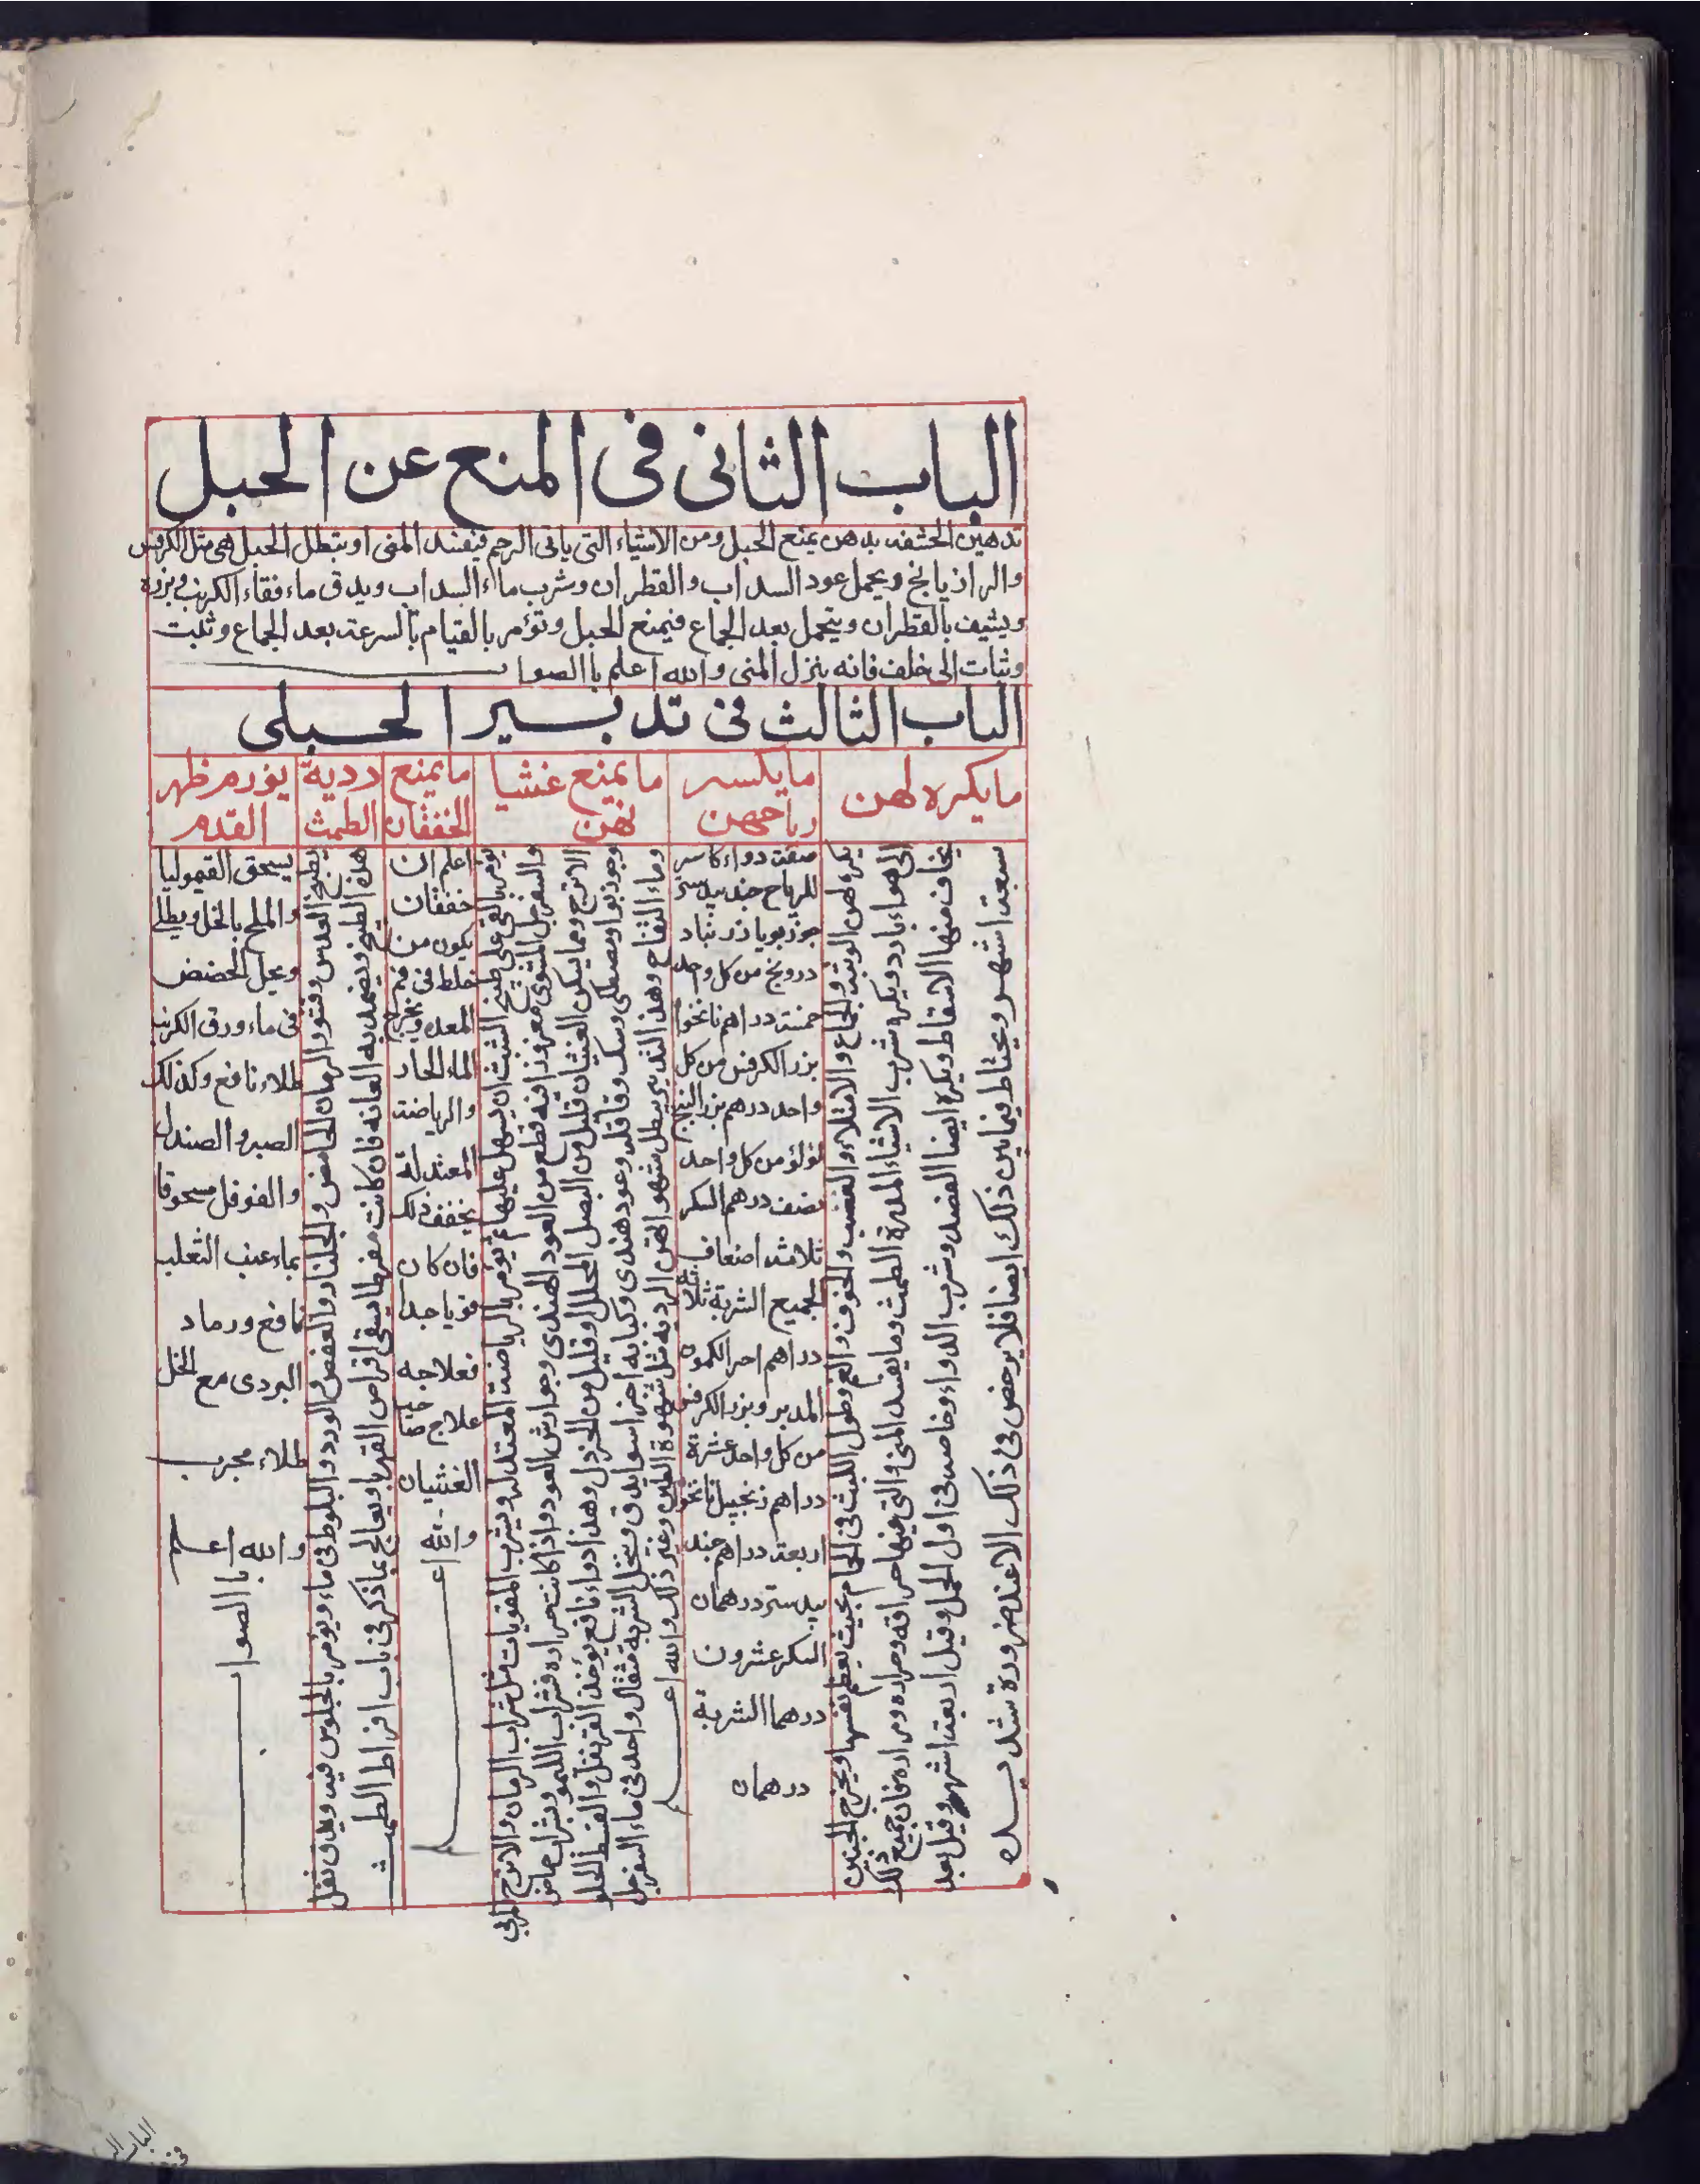 الباب الثانى فى المنع عن الحبل
تدهين الحشفه بدهن يمنع الحبل ومن الاشياء التى ياتى الرحم فيفسد المنى او يبطل الحبل هى مثل الكرفس
والرازيانخ ويحمل عود السداب والقطران وشرب ماء السداب ويدق ماء فقاء الكرنب وبزره
ويشيف بالقطران ويتحمل بعد الجماع فيمنع الحبل وتؤمر بالقيام بالسرعة بعد الجماع وتلبت
وثبات الى خلف فانه ينزل المنى والله اعلم باالصواب
الباب الثالث فى تدبير الحبلى
ما يكره لهن
يكره لهن الوثبه والجماع والامتلاء والغضب والخوف والغم وطول اللبث فى الحمام بحيث يعظم نفسها ويخرج الجنين
الى هواء بارد ويكره شرب الاشياء المدرة الطمث وما يفسد المنى والتى فيها حرافه وحراره ومراره فان جميع ذلك
يخاف منها الاسقاط ويكره ايضا الفصد وشرب الدواء وخاصه فى اول الحمل وقيل اربعة اشهر وقيل بعد
سبعة اشهر ويحتاط فيما بين ذلك ايضا فلا يرخص فى ذلك الا عند ضرورة شديده
ما يكسر
رياحهن
صفة دواء كاسر
للرياح جند بيدستر
جوزبويا زرنباد
درونج من كل واحد
خمسة دراهم نانخوا
بزر الكرفس من كل
واحد درهم بزر البنج
لؤلؤ من كل واحد
نصف درهم السكر
ثلاثة اضعاف
لجميع الشربة ثلاثة
دراهم اخر الكمون
المدبر وبزر الكرفس
من كل واحد عشرة
دراهم زنجبيل نانخوا
اربعة دراهم جند
بيدستر درهمان
السكر عشرون
درهما الشربة
درهمان
ما يمنع غشيا
نهن
يومر بالقى على طبيخ الشبث ان يسهل عليها ثم يومر بالرياضة المعتدله ويشرب المقويات مثل شراب الرمان والاترج المربى
والسفرجل المشوى مغروزا فيه قطع من العود الهندى وجوارش العود واذا كانت حراره فشراب الليمو وشراب حماض
الاترج ومما يسكن الغشيان قليل من البصل المخلل او قليل من الخردل وهذا دواء نافع يؤخذ القرنفل والقسط الحلو
وجوزبوا ومصطكى وسك وقاقله وعود هندى وكبابه اجزا سوا يدق وينخل الشربة مثقال واحد فى ماء السفرجل
وماء التفاح وهذا التدبير يبطل شهواتهن الرديه مثل شهوة الطين وغير ذلك والله اعلم
ما يمنع
الخفقان
اعلم ان
خفقان
يكون من
خلط فى فم
المعده وتجرع
الماء الحار
والرياضة
المعتدلة
يخفف ذلك
فان كان
قويا جدا
فعلاجه
علاج
الغشيان
والله اعلم
دردية
الطمث
يطبخ العدس وقشور الرمان الحامض والجلنار والعفص والورد والبلوط فى ماء ويؤمر بالجلوس فيه ويدق ثفل
هذا الطبيخ ويضمد به العانه فان كانت مفرطا يسقى اقراص القهربا ويعالج بما ذكر فى باب افراط الطمث
يؤرم ظهر
القدم
يسحق القيموليا
والملح بالخل ويطلى
ويحل الحضض
فى ماء ورق الكرنب
طلاء نافع وكذلك
الصبر والصندل
والفوفل مسحوقا
بماء عنب الثعلب
نافع ورماد
البردى مع الخل
طلاء مجرب
والله اعلم
باالصواب